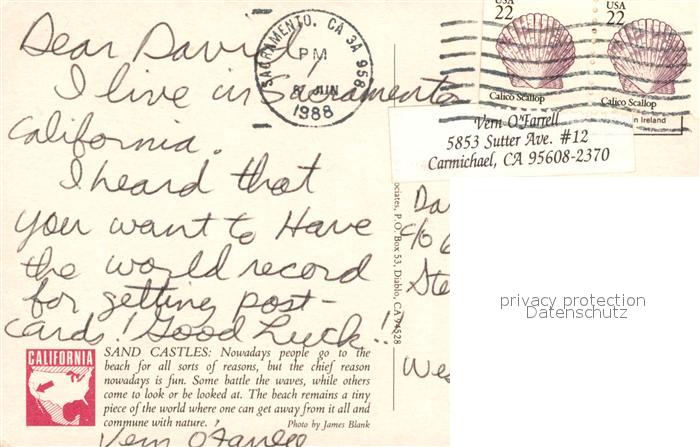 USA
22
USA
22
Calico Scallop
Calico Scallop
SACRAMENTO, CA 3A 958
PM
JUN
1988
n Ireland
Vern O'Farrell
5853 Sutter Ave. #12
Carmichael, CA 95608-2370
Dear David,
I live in Sacramento
California.
I heard that
you want to Have
the world record
for getting post-
cards! Good Luck!!
Vern O'Farrell
ociates, P.O. Box 53, Diablo, CA 94528
Da
c/o
Ste
Wes
privacy protection
Datenschutz
CALIFORNIA
SAND CASTLES: Nowadays people go to the
beach for all sorts of reasons, but the chief reason
nowadays is fun. Some battle the waves, while others
come to look or be looked at. The beach remains a tiny
piece of the world where one can get away from it all and
commune with nature.
Photo by James Blank